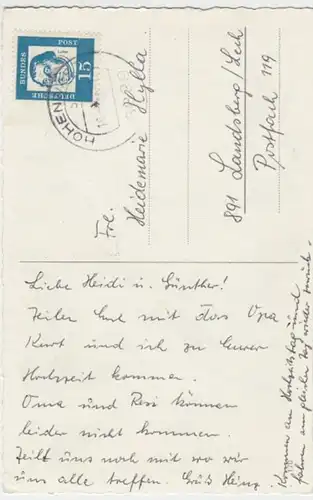 DEUTSCHE
BUNDES
POST
15
HOHEN
Frl.
Heidemarie Hylla
891 Landsberg/Lech
Postfach 119
Liebe Heidi u. Günther!
Teilen Euch mit das Opa
Kurt und ich zu Eurer
Hochzeit kommen.
Oma und Resi können
leider nicht kommen.
Teilt uns noch mit wo wir
uns alle treffen. Gruß Heinz.
Kommen am Hochzeitstag und
fahren am gleichen Tag wieder zurück.